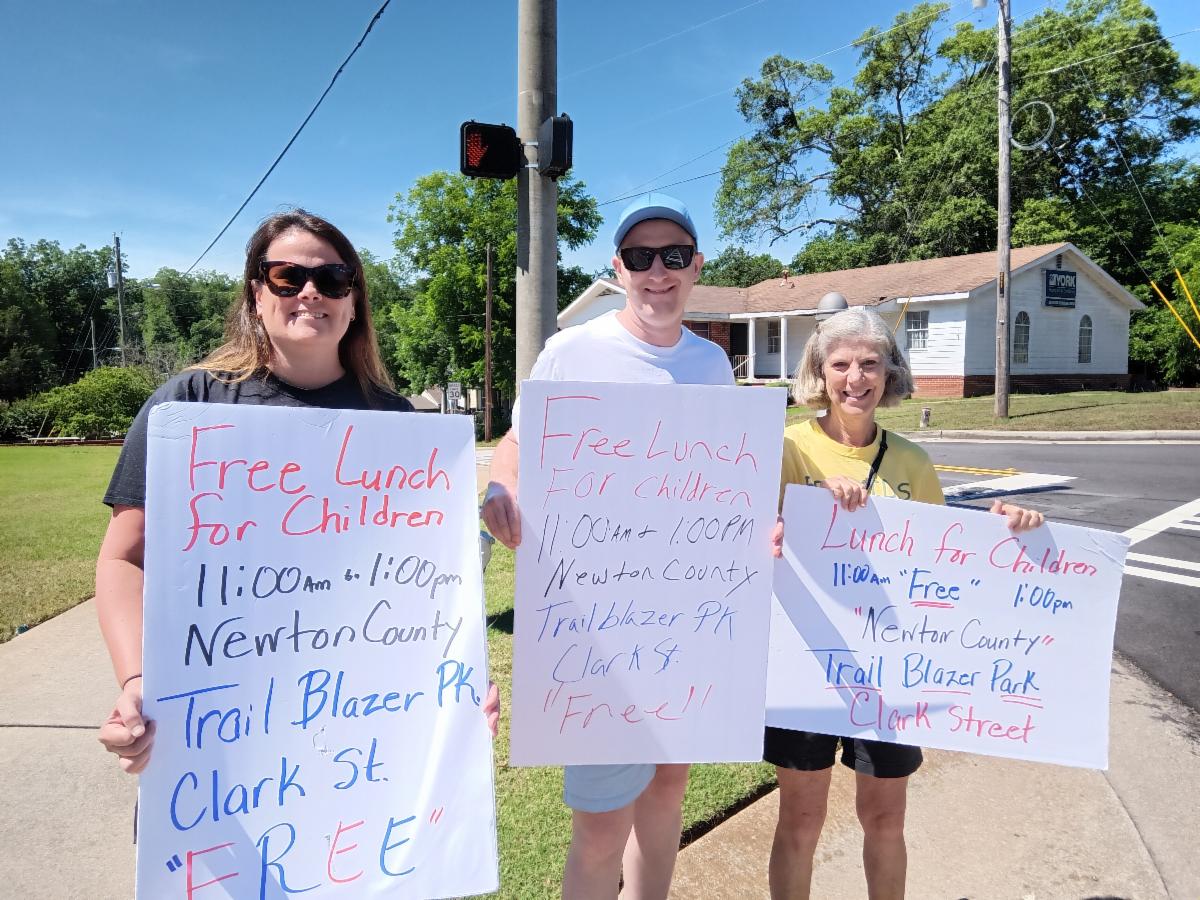 Free Lunch
for Children
11:00 Am to 1:00pm
Newton County
Trail Blazer PK.
Clark St.
"FREE"
Free Lunch
For children
11:00 AM & 1:00PM
Newton County
Trailblazer PK
Clark St.
"Free"
Lunch for Children
11:00 Am "Free" 1:00pm
"Newton County"
Trail Blazer Park
Clark Street
YORK
30